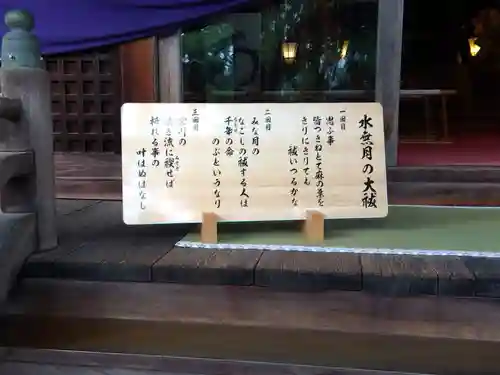 水無月の大祓
一回目
思ふ事
皆つきねとて麻の葉を
きりにきりても
祓いつるかな
二回目
みな月の
なごしの祓する人は
千年の命
のぶというなり
三回目
清き流に禊せば
祈れる事の
叶はぬはなし